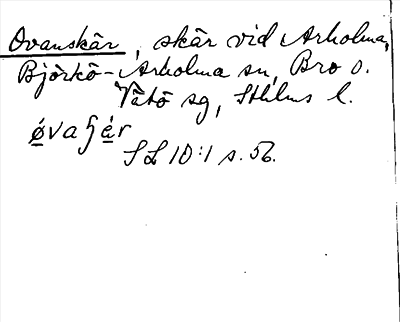 Ovanskär, skär vid Arholma,
Björkö-Arholma sn, Bro o.
Vätö sg, Sthlms l.
øvaʃär
SL 10:1 s. 56.